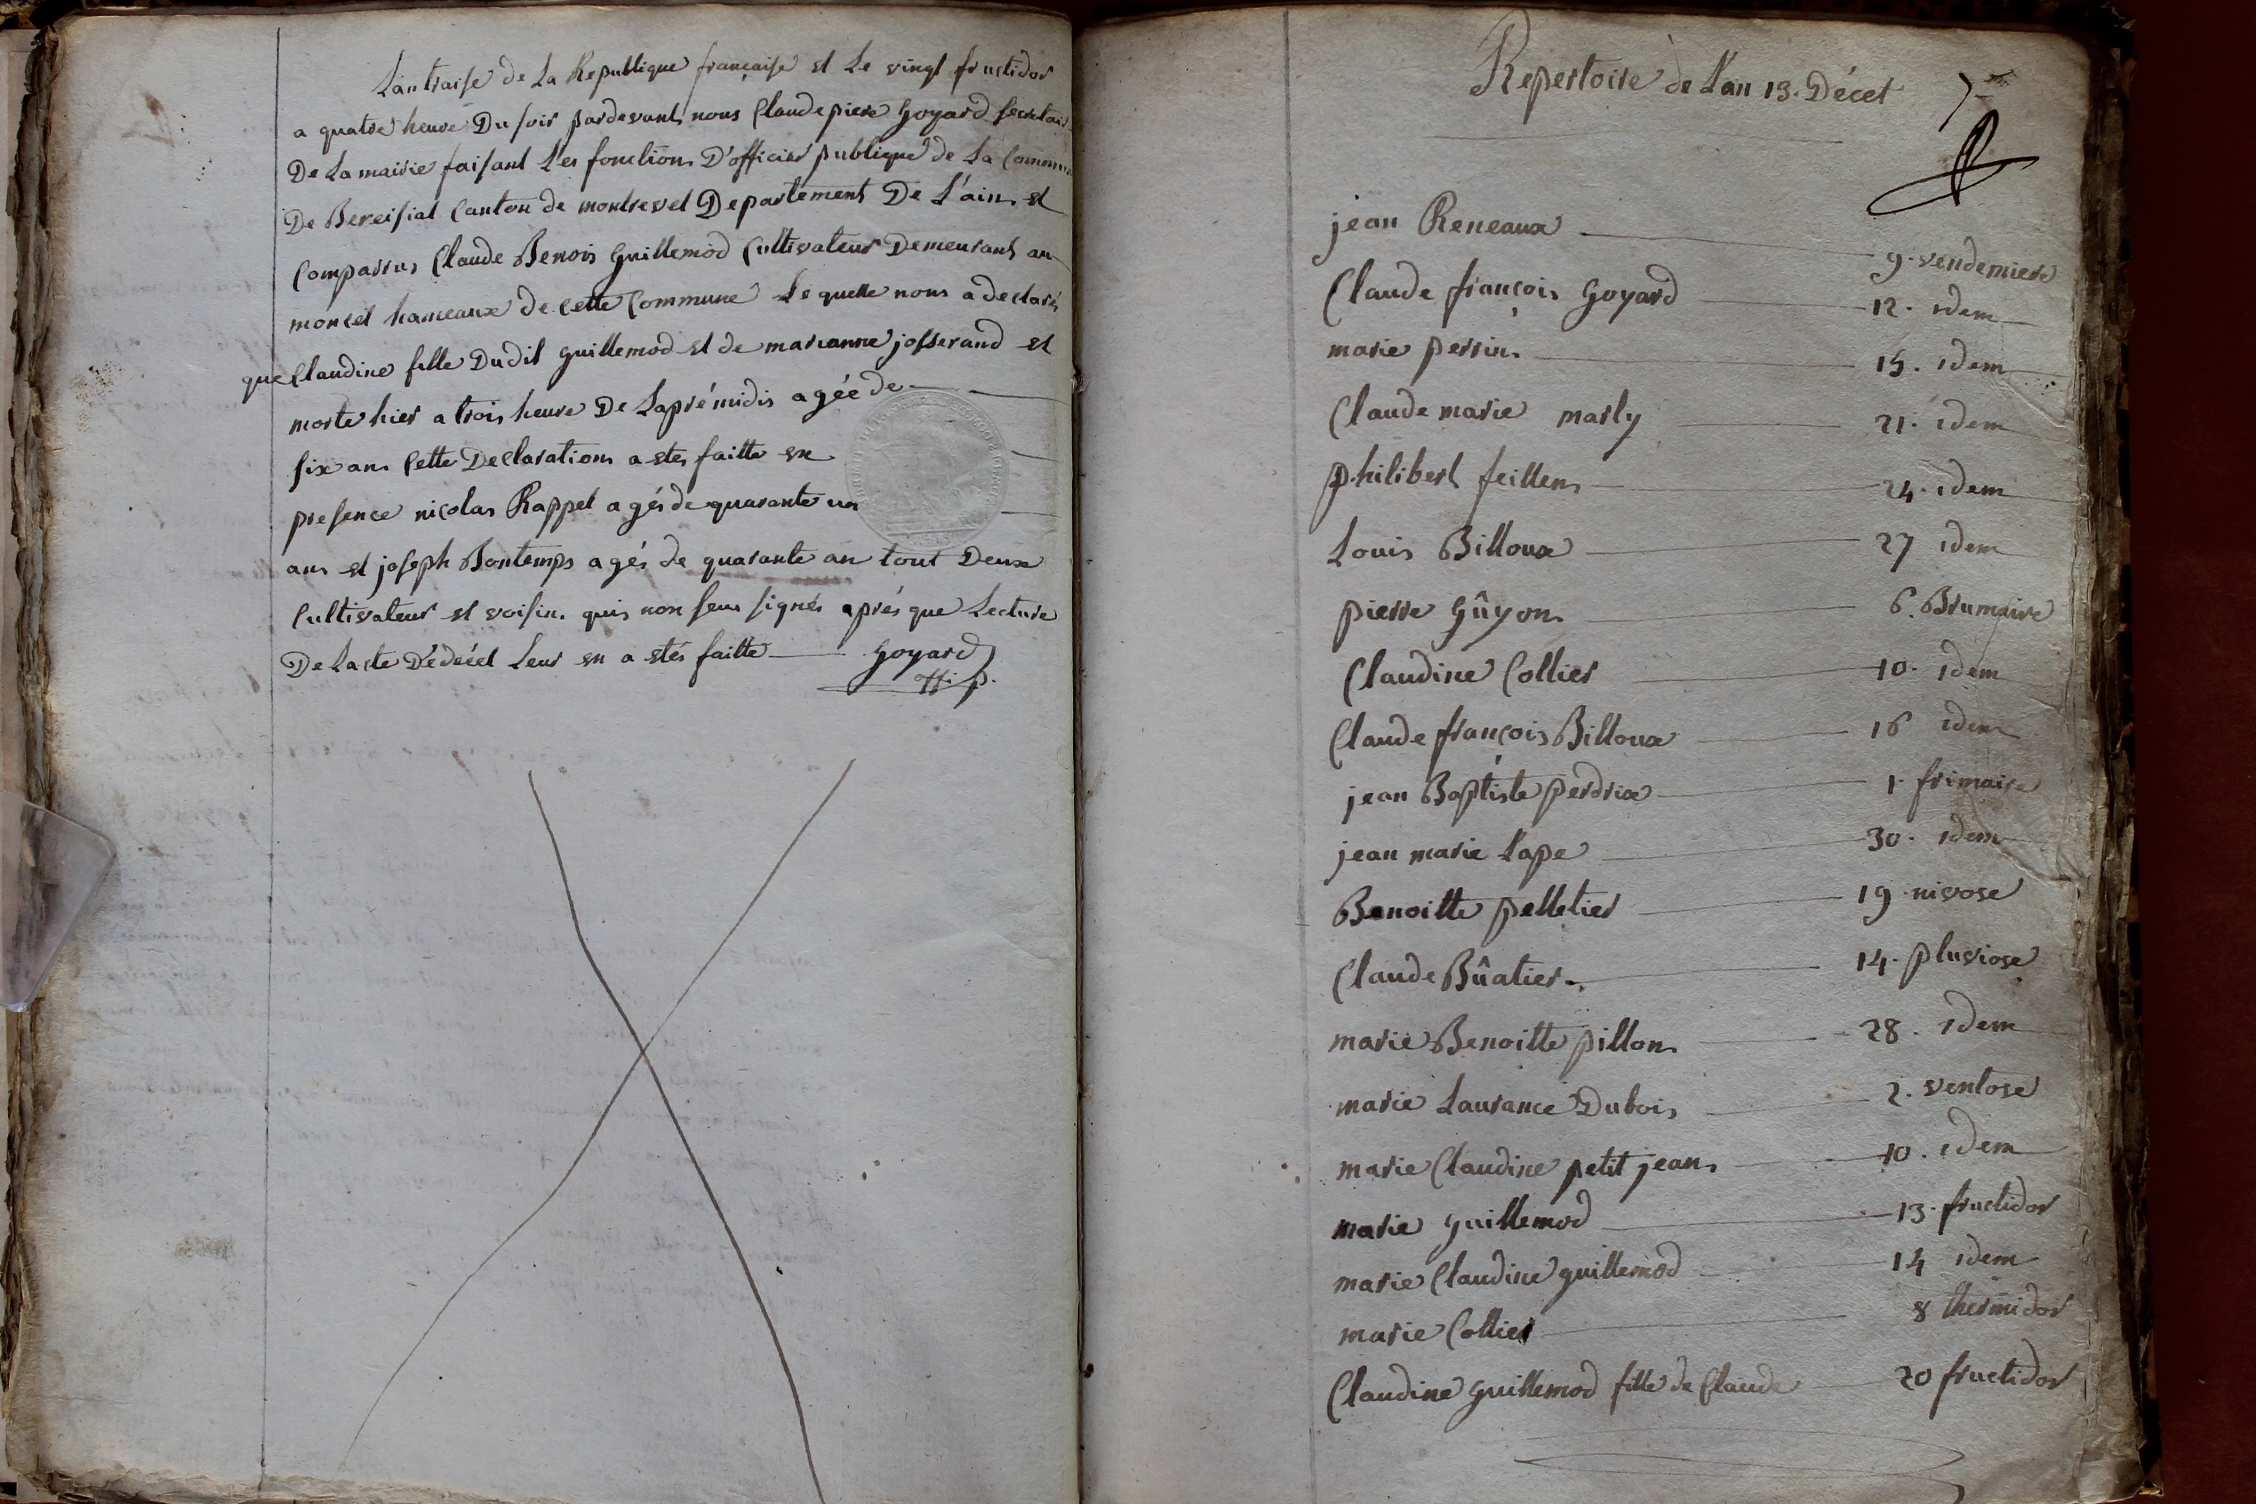 Lan traise de La Republique française et Le vingt fructidor
a quatre heure Du soir pardevant nous Claude piere Goyard secretaire
De La mairie faisant Les fonctions D'officier publique de La Commune
De Bereisiat Canton de montrevel Departement De L'ain est
Comparrus Claude Benois Guillemod Cultivateur Demeurant au
moncel hameaux de Cette Commune Le quelle nous a declarés
que Claudine fille Dudit guillemod et de marianne josserand est
morte hier a trois heure De Laprémidis agée de
six ans Cette Declaration a etés faitte en
presence nicolas Rappet agés de quarante un
ans et joseph Bontemps agés de quarante an tout Deux
Cultivateur et voisin quis non seus signés aprés que Lecture
De Lacte Dédécet Leur en a etés faitte Goyard
off. p.
Repertoire de L'an 13. Décet
7
jean Reneaux 9. vendemiere
Claude françois Goyard 12. idem
marie perrin 15. idem
Claude marie marly 21. idem
philibert feillens 24. idem
Louis Billoux 27 idem
pierre Gûyon 6. Brumaire
Claudine Collier 10. idem
Claude françois Billoux 16 idem
jean Baptiste perdrix 1. frimaire
jean marie Lape 30. idem
Benoitte pelletier 19 nivose
Claude Bûatier 14. pluviose
marie Benoitte pillon 28. idem
marie Laurance Dubois 2. ventose
marie Claudine petit jean 10. idem
marie guillemod 13. fructidor
marie Claudine guillemod 14 idem
marie Collier 8 thermidor
Claudine guillemod fille de Claude 20 fructidor